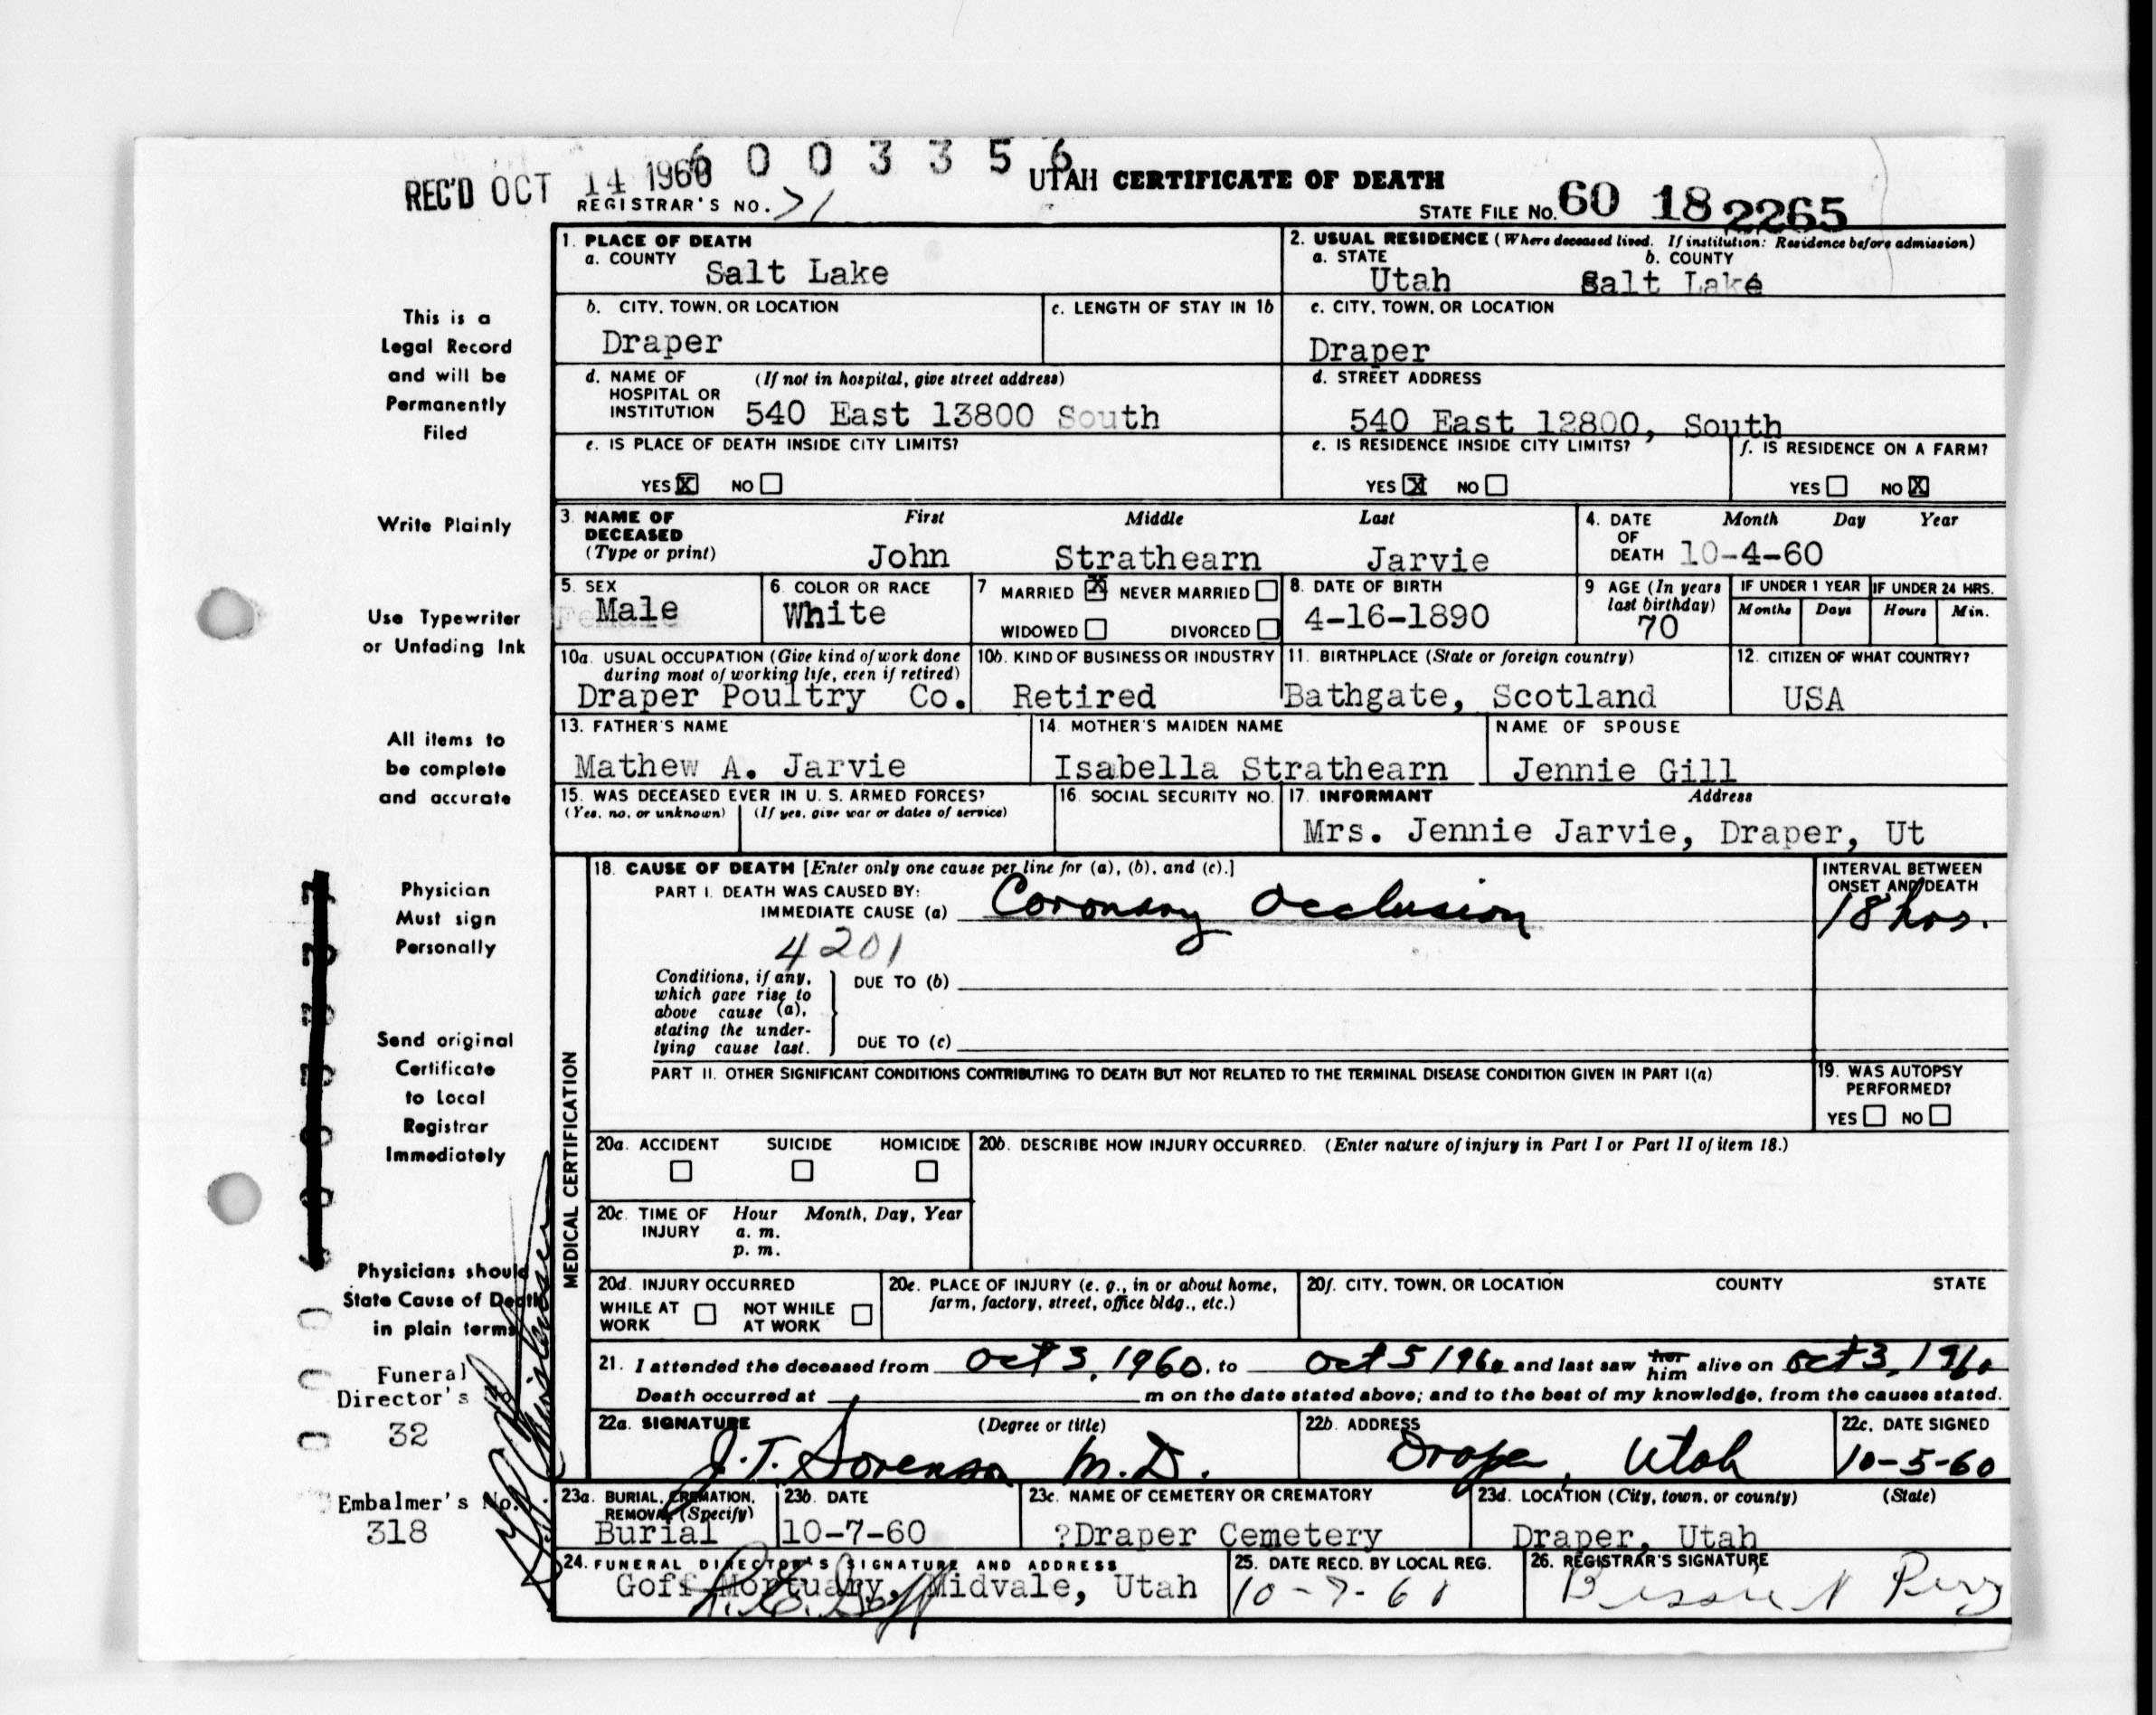 6 0 0 3 3 5 6
REC'D OCT 14 1960
UTAH CERTIFICATE OF DEATH
REGISTRAR'S NO. 71
STATE FILE NO. 60 18 2265
1. PLACE OF DEATH
a. COUNTY
Salt Lake
2. USUAL RESIDENCE (Where deceased lived. If institution: Residence before admission)
a. STATE b. COUNTY
Utah Salt Lake
b. CITY, TOWN, OR LOCATION
Draper
c. LENGTH OF STAY IN 1b
c. CITY, TOWN, OR LOCATION
Draper
d. NAME OF HOSPITAL OR INSTITUTION
(If not in hospital, give street address)
540 East 13800 South
d. STREET ADDRESS
540 East 12800, South
e. IS PLACE OF DEATH INSIDE CITY LIMITS?
YES X NO
e. IS RESIDENCE INSIDE CITY LIMITS?
YES X NO
f. IS RESIDENCE ON A FARM?
YES NO X
3. NAME OF DECEASED
(Type or print)
First Middle Last
John Strathearn Jarvie
4. DATE OF DEATH
Month Day Year
10-4-60
5. SEX
Male
6. COLOR OR RACE
White
7 MARRIED X NEVER MARRIED
WIDOWED DIVORCED
8. DATE OF BIRTH
4-16-1890
9 AGE (In years last birthday)
70
IF UNDER 1 YEAR
Months Days
IF UNDER 24 HRS.
Hours Min.
10a. USUAL OCCUPATION (Give kind of work done during most of working life, even if retired)
Draper Poultry Co.
10b. KIND OF BUSINESS OR INDUSTRY
Retired
11. BIRTHPLACE (State or foreign country)
Bathgate, Scotland
12. CITIZEN OF WHAT COUNTRY?
USA
13. FATHER'S NAME
Mathew A. Jarvie
14. MOTHER'S MAIDEN NAME
Isabella Strathearn
NAME OF SPOUSE
Jennie Gill
15. WAS DECEASED EVER IN U. S. ARMED FORCES?
(Yes, no, or unknown) (If yes, give war or dates of service)
16. SOCIAL SECURITY NO.
17. INFORMANT Address
Mrs. Jennie Jarvie, Draper, Ut
MEDICAL CERTIFICATION
18. CAUSE OF DEATH [Enter only one cause per line for (a), (b), and (c).]
PART I. DEATH WAS CAUSED BY:
IMMEDIATE CAUSE (a) Coronary Occlusion
4201
INTERVAL BETWEEN ONSET AND DEATH
18 hrs.
Conditions, if any, which gave rise to above cause (a), stating the underlying cause last.
DUE TO (b)
DUE TO (c)
PART II. OTHER SIGNIFICANT CONDITIONS CONTRIBUTING TO DEATH BUT NOT RELATED TO THE TERMINAL DISEASE CONDITION GIVEN IN PART I(a)
19. WAS AUTOPSY PERFORMED?
YES NO
20a. ACCIDENT SUICIDE HOMICIDE
20b. DESCRIBE HOW INJURY OCCURRED. (Enter nature of injury in Part I or Part II of item 18.)
20c. TIME OF INJURY
Hour Month, Day, Year
a. m.
p. m.
20d. INJURY OCCURRED
WHILE AT WORK NOT WHILE AT WORK
20e. PLACE OF INJURY (e. g., in or about home, farm, factory, street, office bldg., etc.)
20f. CITY, TOWN, OR LOCATION COUNTY STATE
21. I attended the deceased from Oct 3, 1960, to Oct 5 1960 and last saw her him alive on Oct 3, 1960
Death occurred at m on the date stated above; and to the best of my knowledge, from the causes stated.
22a. SIGNATURE (Degree or title)
J.T. Sorenson M.D.
22b. ADDRESS
Draper, Utah
22c. DATE SIGNED
10-5-60
23a. BURIAL, CREMATION, REMOVAL (Specify)
Burial
23b. DATE
10-7-60
23c. NAME OF CEMETERY OR CREMATORY
?Draper Cemetery
23d. LOCATION (City, town, or county) (State)
Draper, Utah
24. FUNERAL DIRECTOR'S SIGNATURE AND ADDRESS
Goff Mortuary, Midvale, Utah
25. DATE RECD. BY LOCAL REG.
10-7-60
26. REGISTRAR'S SIGNATURE
Bessie N Perry
This is a
Legal Record
and will be
Permanently
Filed
Write Plainly
Use Typewriter
or Unfading Ink
All items to
be complete
and accurate
Physician
Must sign
Personally
Send original
Certificate
to Local
Registrar
Immediately
Physicians should
State Cause of Death
in plain terms
Funeral
Director's No.
32
Embalmer's No.
318